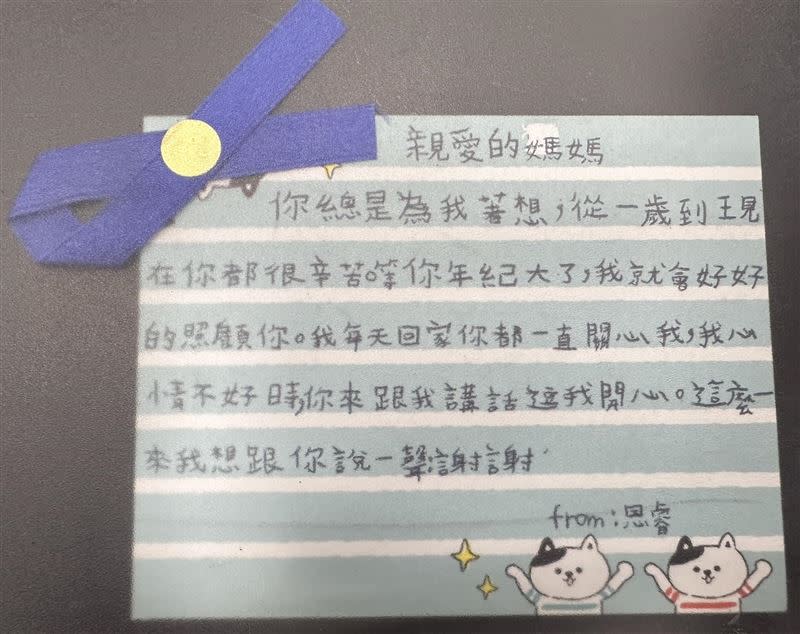 親愛的媽媽
你總是為我著想,從一歲到現
在你都很辛苦。等你年紀大了,我就會好好
的照顧你。我每天回家你都一直關心我,我心
情不好時,你來跟我講話逗我開心。這麼一
來我想跟你說一聲謝謝
from:恩睿